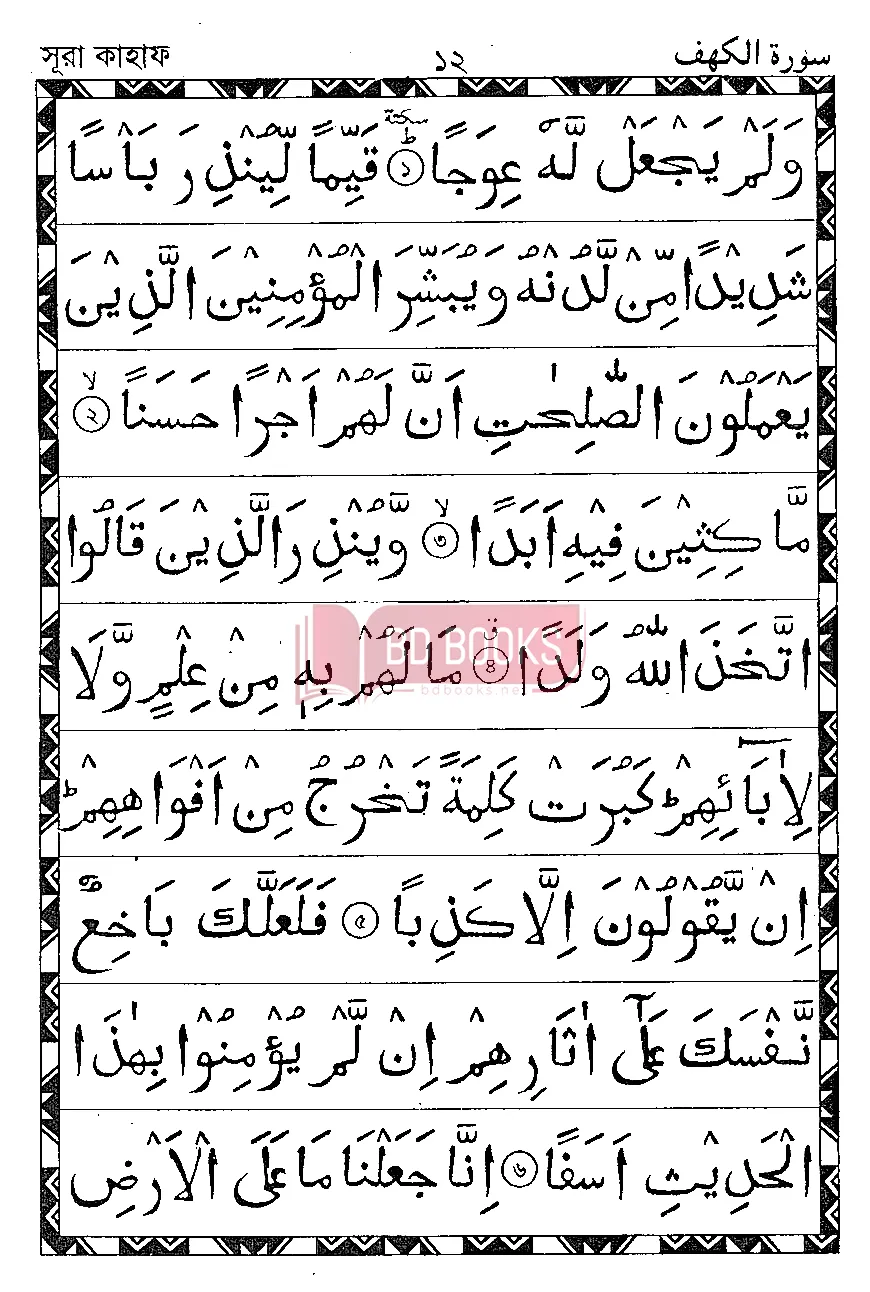 সূরা কাহাফ ১২ سورة الكهف
وَلَمْ يَجْعَلْ لَّهٗ عِوَجًا ؕ سكتة ﴿১﴾ قَيِّمًا لِّيُنْذِرَ بَاْسًا
شَدِيْدًا مِّنْ لَّدُنْهُ وَيُبَشِّرَ الْمُؤْمِنِيْنَ الَّذِيْنَ
يَعْمَلُوْنَ الصّٰلِحٰتِ اَنَّ لَهُمْ اَجْرًا حَسَنًا ۙ ﴿২﴾
مَّاكِثِيْنَ فِيْهِ اَبَدًا ۙ ﴿৩﴾ وَّيُنْذِرَ الَّذِيْنَ قَالُوا
اتَّخَذَ اللّٰهُ وَلَدًا ق ﴿৪﴾ مَا لَهُمْ بِهٖ مِنْ عِلْمٍ وَّلَا
لِاٰبَآئِهِمْ ؕ كَبُرَتْ كَلِمَةً تَخْرُجُ مِنْ اَفْوَاهِهِمْ ؕ
اِنْ يَّقُوْلُوْنَ اِلَّا كَذِبًا ﴿৫﴾ فَلَعَلَّكَ بَاخِعٌ
نَّفْسَكَ عَلٰٓى اٰثَارِهِمْ اِنْ لَّمْ يُؤْمِنُوْا بِهٰذَا
الْحَدِيْثِ اَسَفًا ﴿৬﴾ اِنَّا جَعَلْنَا مَا عَلَى الْاَرْضِ
BD BOOKS
bdbooks.net